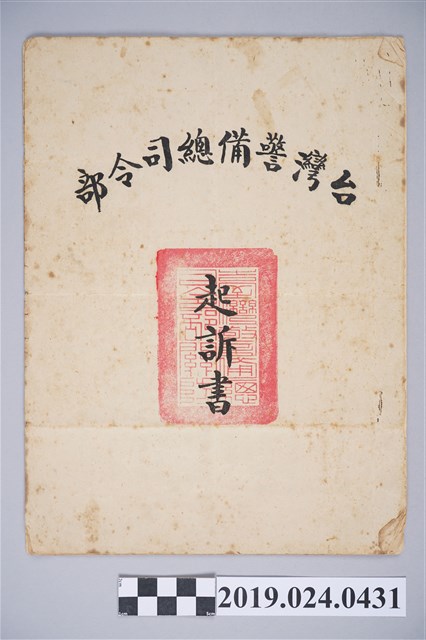 台灣警備總司令部
起訴書
2019.024.0431